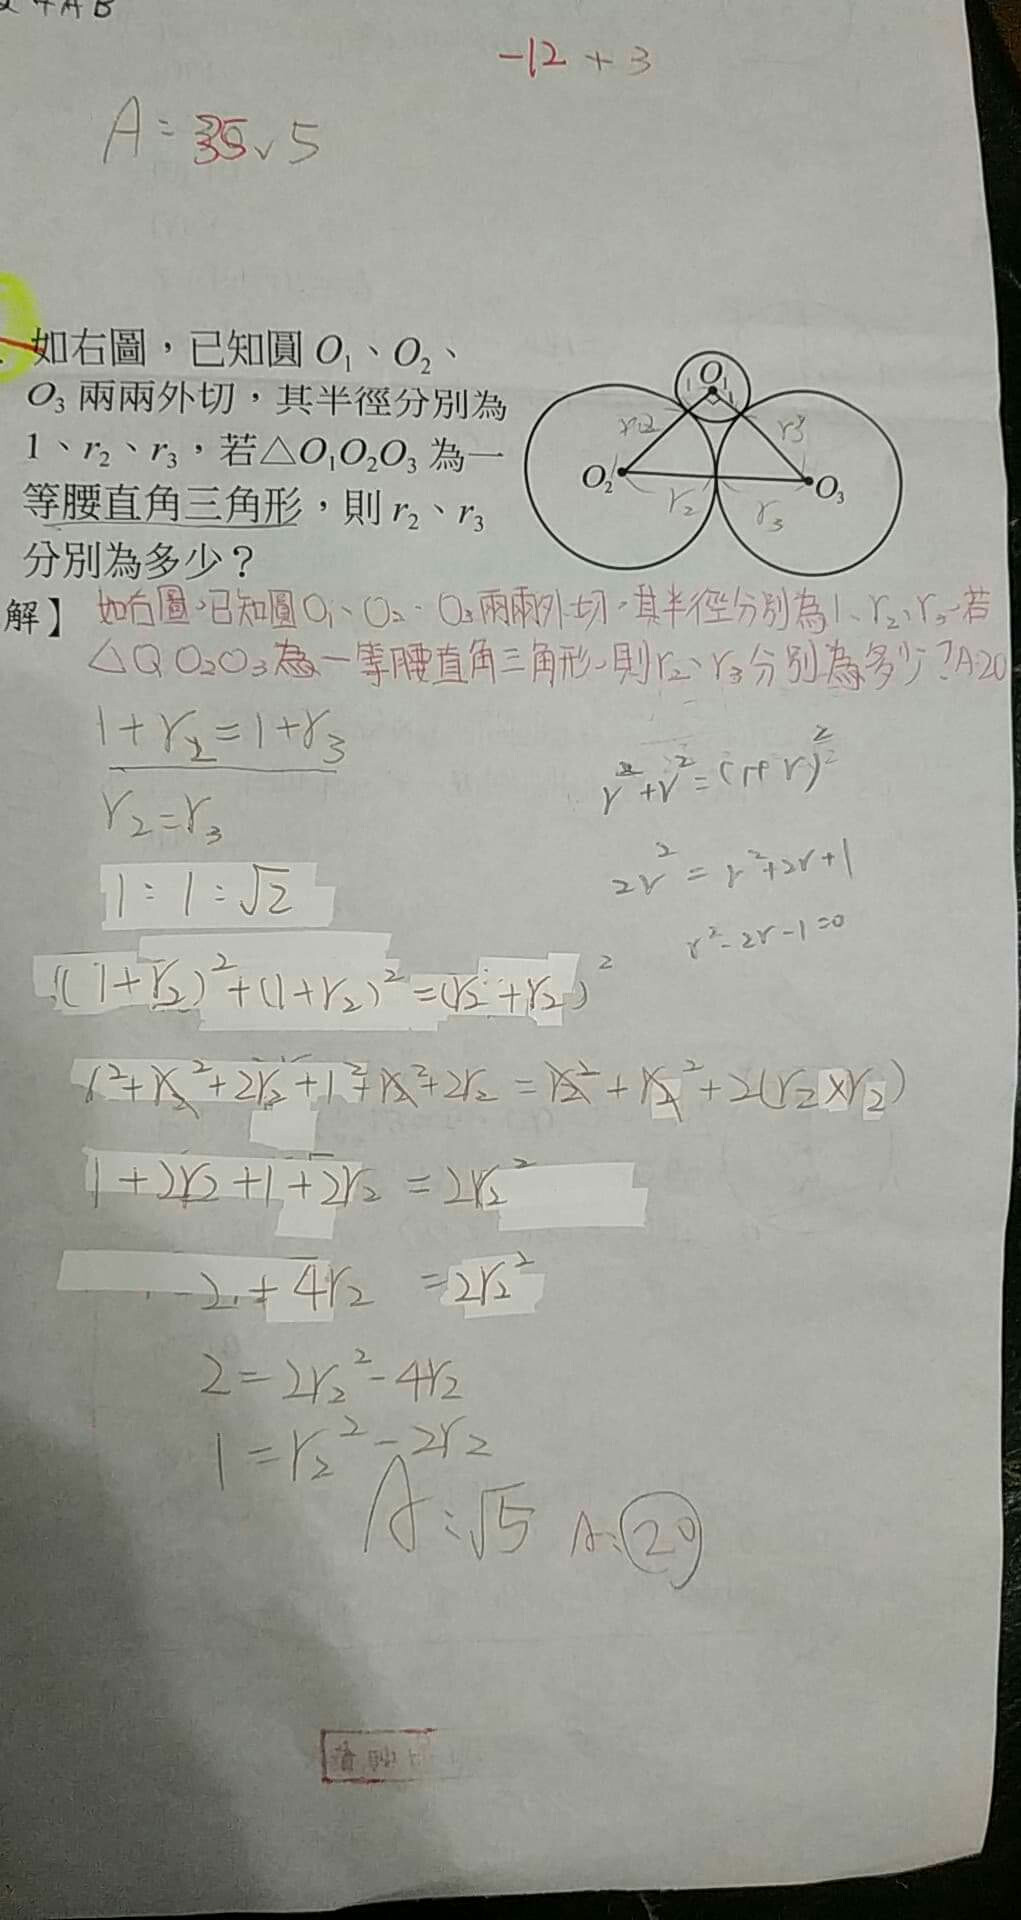 -12 + 3
A = 35√5
如右圖，已知圓 O₁、O₂、
O₃ 兩兩外切，其半徑分別為
1、r₂、r₃，若△O₁O₂O₃ 為一
等腰直角三角形，則 r₂、r₃
分別為多少？
O₁
1 1
r₂ r₃
O₂ O₃
r₂ r₃
解】 如右圖,已知圓O₁、O₂、O₃兩兩外切,其半徑分別為1、r₂、r₃,若
△O₁O₂O₃為一等腰直角三角形,則r₂、r₃分別為多少?A:20
1+r₂=1+r₃
r₂=r₃
1:1:√2
(1+r₂)²+(1+r₂)²=(r₂+r₂)²
1²+r₂²+2r₂+1²+r₂²+2r₂=r₂²+r₂²+2(r₂×r₂)
1+2r₂+1+2r₂=2r₂²
2+4r₂=2r₂²
2=2r₂²-4r₂
1=r₂²-2r₂
A:√5 A:20
2r²=r²+2r+1
r²-2r-1=0